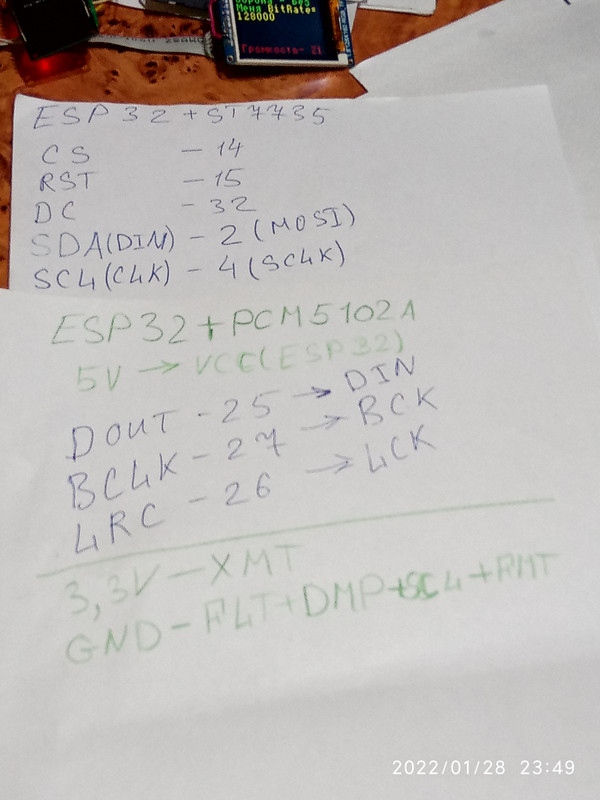 Меня BitRate=
128000
Громкость- 21
ESP 32 + ST7735
CS - 14
RST - 15
DC - 32
SDA(DIN) - 2 (MOSI)
SCL(CLK) - 4 (SCLK)
ESP32+PCM5102A
5V → VCC(ESP32)
DOUT - 25 → DIN
BCLK - 27 → BCK
LRC - 26 → LCK
3,3V - XMT
GND - FLT+DMP+SCL+FMT
2022/01/28 23:49